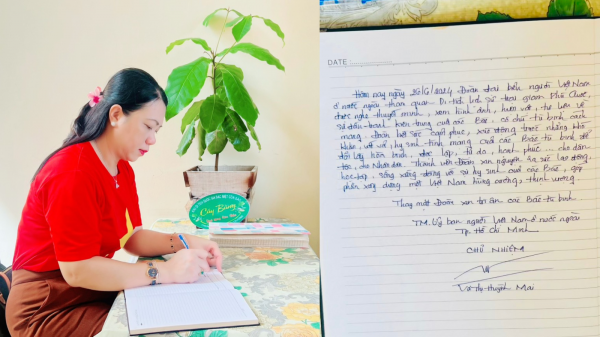 Cây Bàng
DATE
Hôm nay ngày 26/6/2024 Đoàn đại biểu người Việt Nam
ở nước ngoài tham quan Di tích lịch sử trại giam Phú Quốc,
được nghe thuyết minh, xem hình ảnh, hiện vật, tư liệu về
sự đấu tranh kiên trung của các Bác, cô chú tù binh cách
mạng, đoàn hết sức cảm phục, xúc động trước những khó
khăn, vất vả, hy sinh tính mạng của các Bác tù binh để
đổi lấy hòa bình, độc lập, tự do, hạnh phúc ... cho dân
tộc, cho Nhân dân. Thành viên Đoàn xin nguyện ra sức lao động,
học tập, sống xứng đáng với sự hy sinh của các Bác, góp
phần xây dựng một Việt Nam hùng cường, thịnh vượng.
Thay mặt Đoàn xin tri ân các Bác tù binh
TM. Ủy ban người Việt Nam ở nước ngoài
Tp. Hồ Chí Minh
CHỦ NHIỆM
Võ Thị Huỳnh Mai